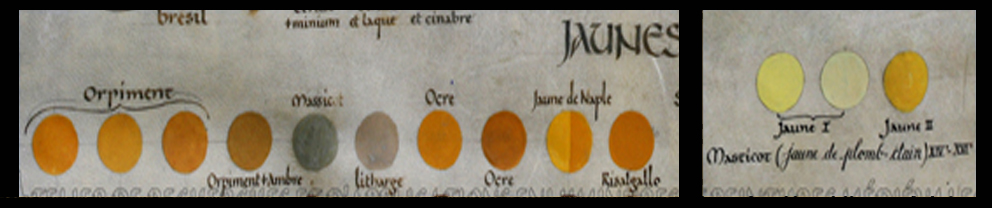 brésil
+minium et laque et cinabre
JAUNES
Orpiment
Massicot
Ocre
Jaune de Naple
Orpiment+Ambre
litharge
Ocre
Risalgallo
Jaune I
Jaune II
Massicot (jaune de plomb-étain)